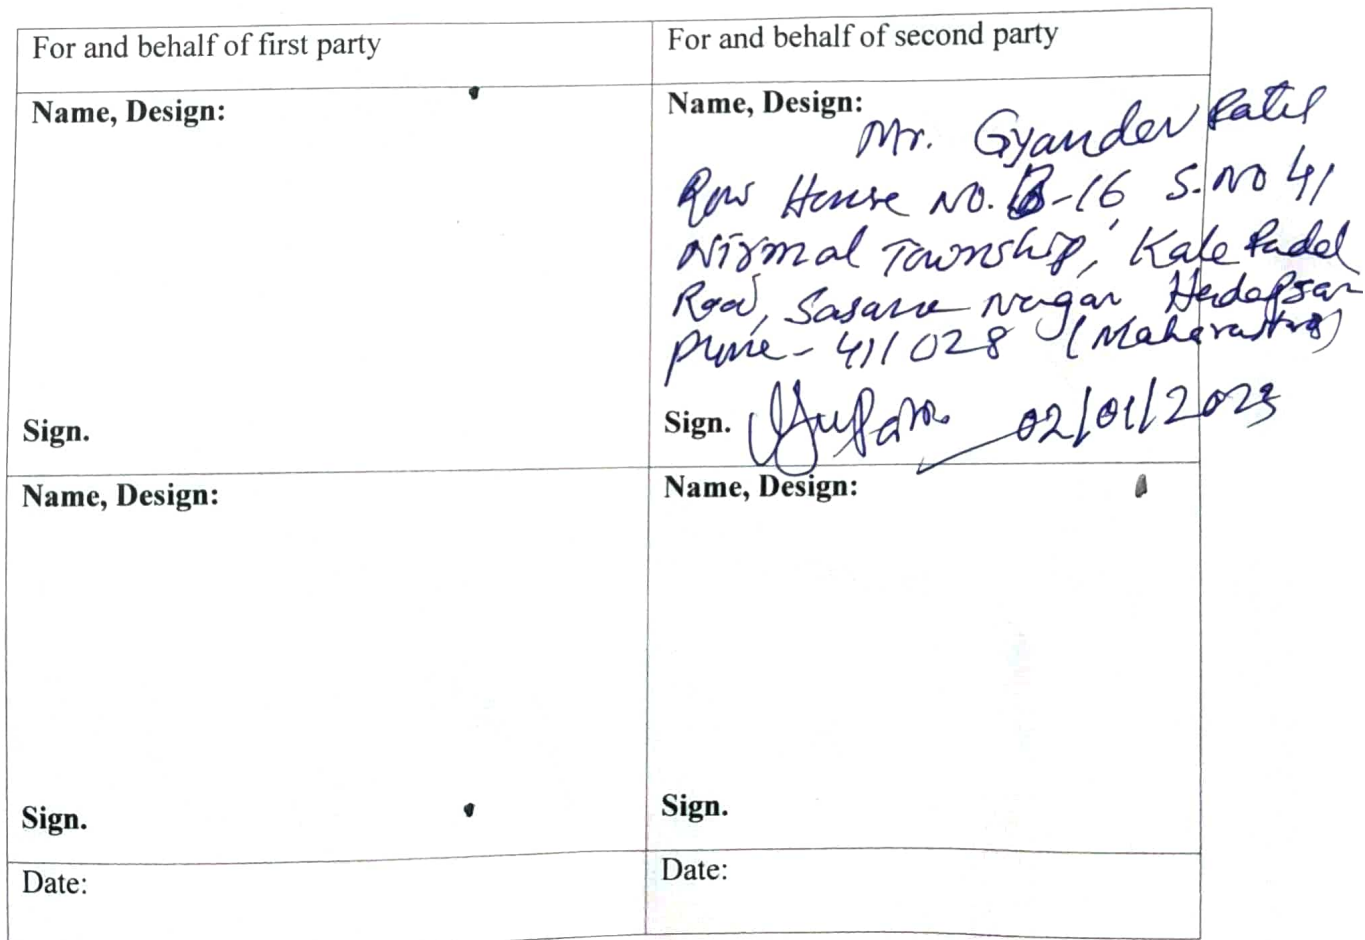 For and behalf of first party
For and behalf of second party
Name, Design:
Sign.
Name, Design:
Mr. Gyandev Patil
Row House NO. B-16, S. NO 41
Nirmal Township, Kale Padel
Road, Sasane Nagar Hadapsar
Pune - 411028 (Maharastra)
Sign. 02/01/2023
Name, Design:
Sign.
Name, Design:
Sign.
Date:
Date: